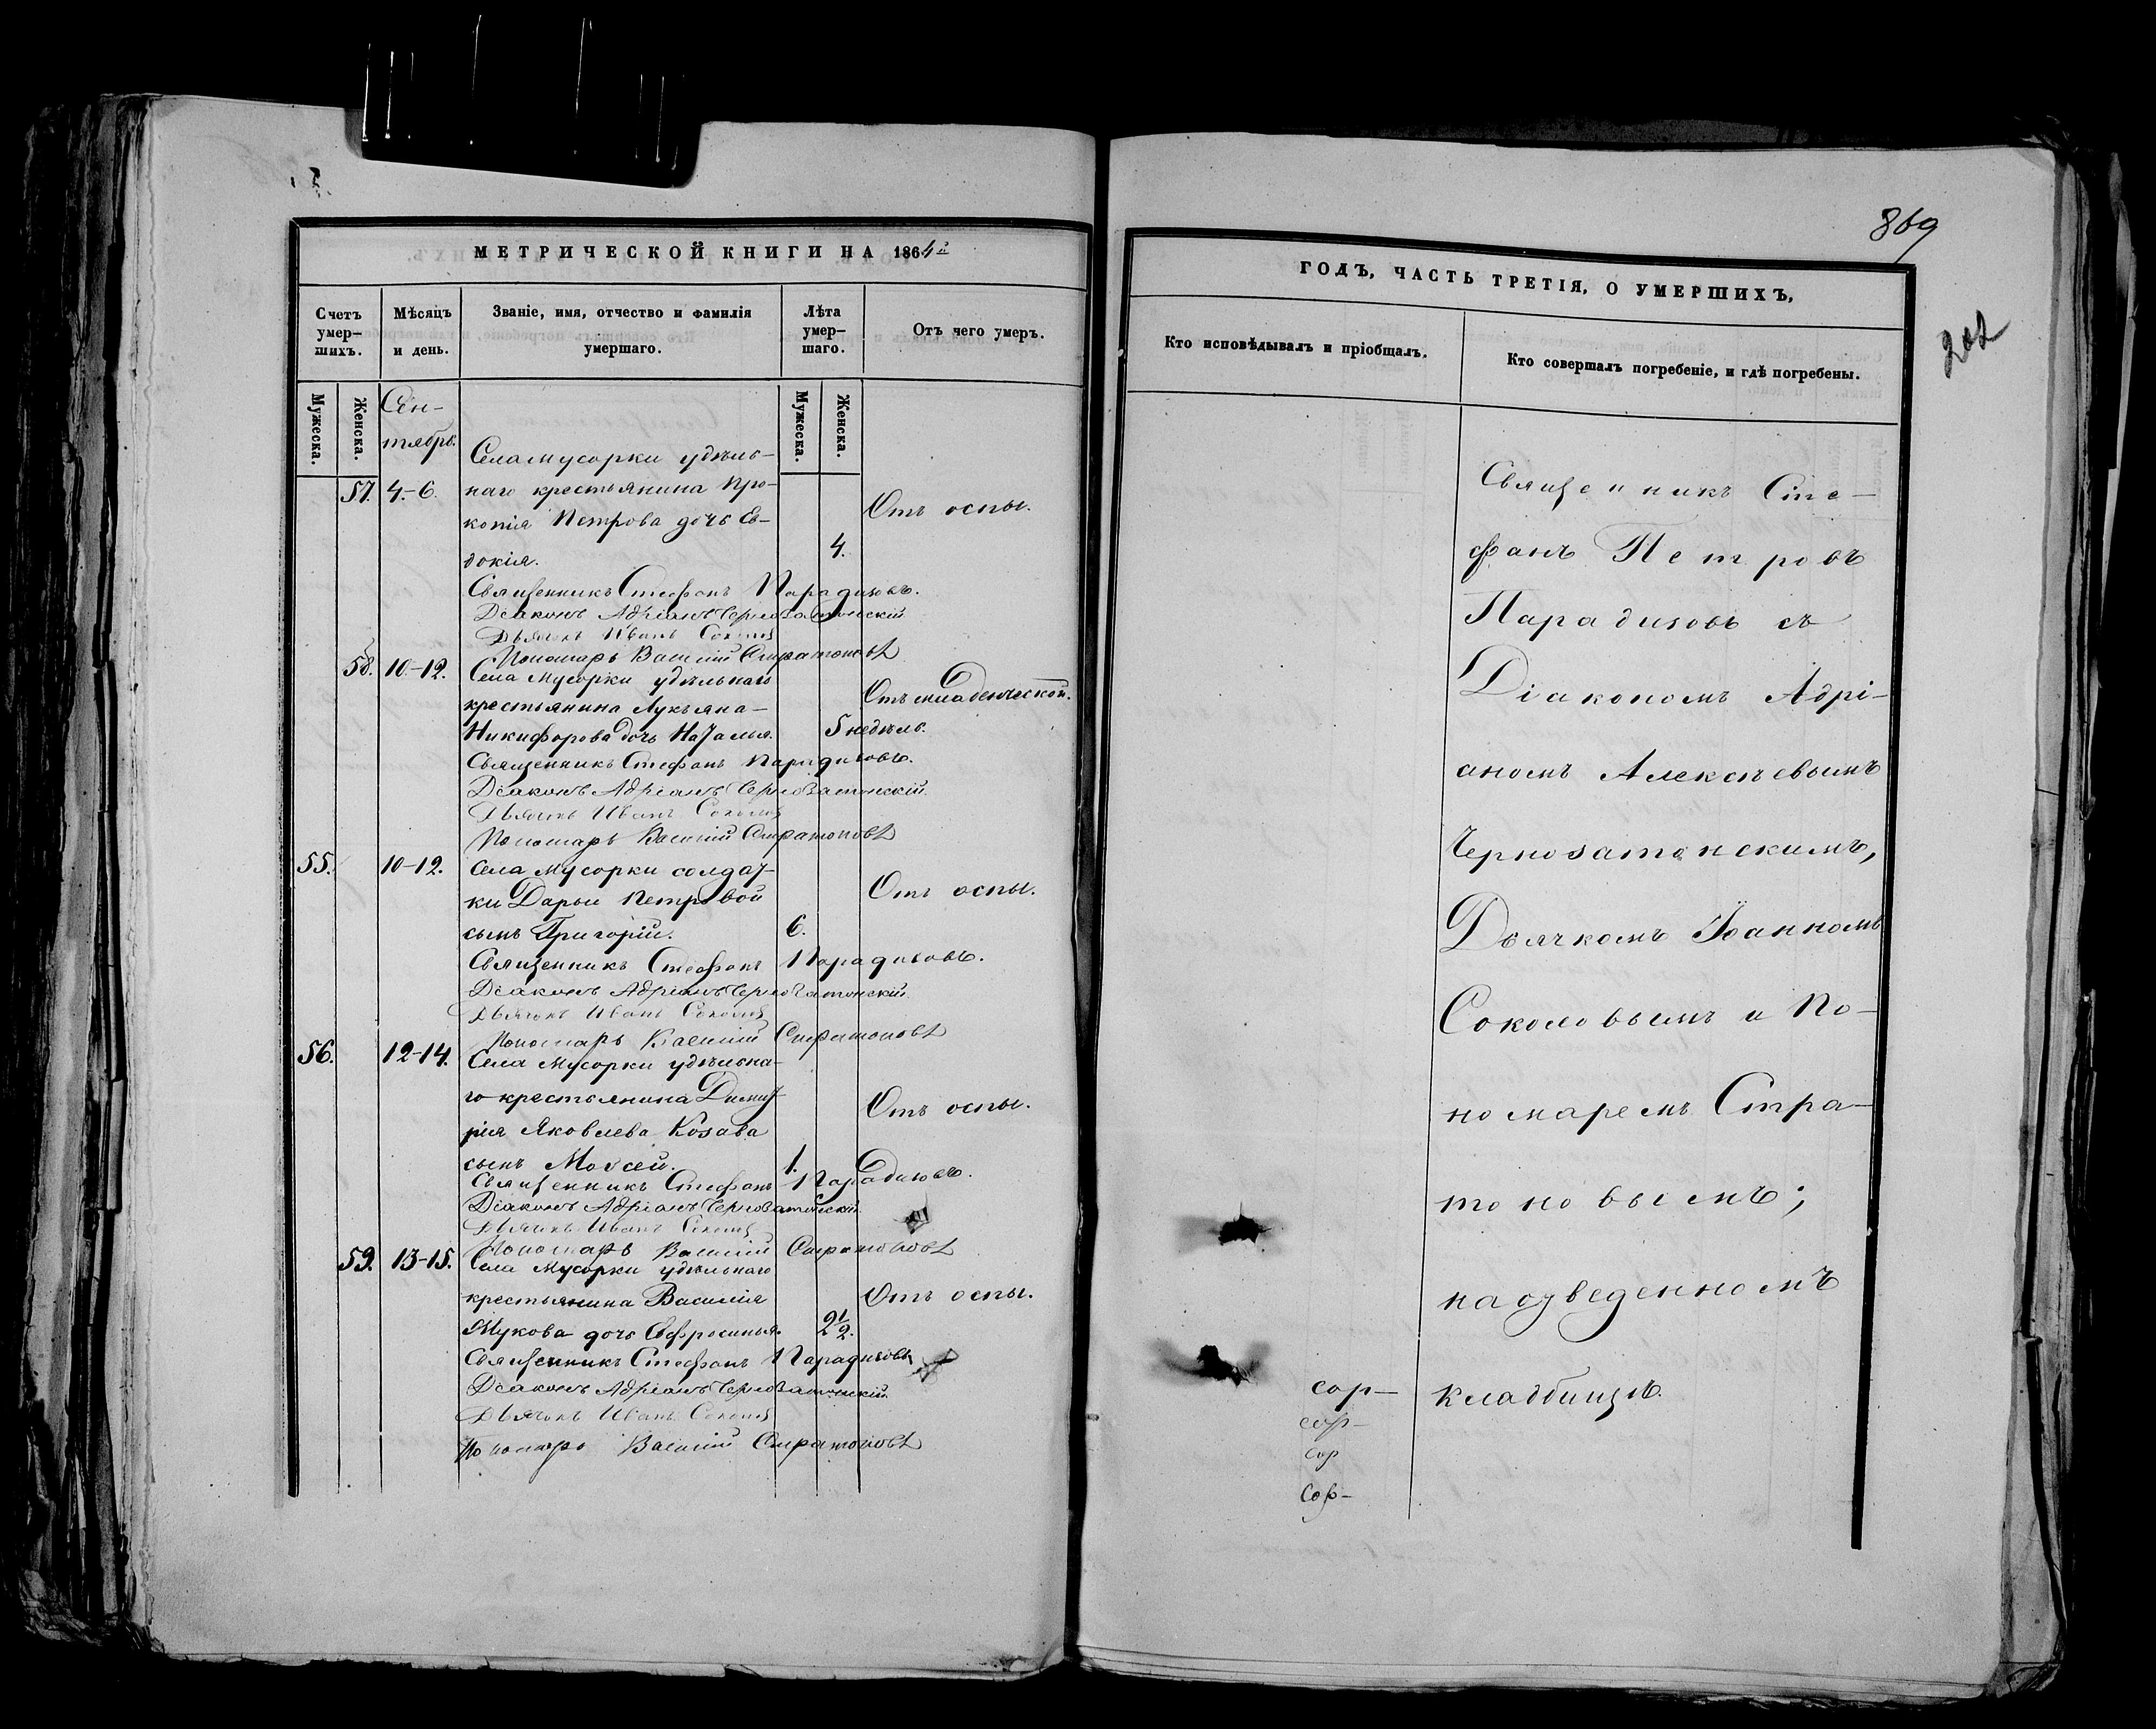 869
202
МЕТРИЧЕСКОЙ КНИГИ НА 1864й
Счетъ умер-
шихъ.
Мѣсяцъ
и день.
Званіе, имя, отчество и фамилія
умершаго.
Лѣта
умер-
шаго.
Отъ чего умеръ.
Мужеска.
Женска.
Мужеска.
Женска.
Сен-
тябрь.
Села Мусорки удѣль-
57. 4.-6. наго крестьянина Про-
Отъ оспы.
копія Петрова дочь Ев-
докія.
4.
Священникъ Стефанъ Парадизовъ.
Діаконъ Адріанъ Чернозатонскій
Дьячокъ Иванъ Соколовъ
Пономарь Василій Стратоновъ
58. 10-12. Села Мусорки удѣльнаго
Отъ младенческой.
крестьянина Лукьяна
Никифорова дочь Наталья. 5 недѣль.
Священникъ Стефанъ Парадизовъ.
Діаконъ Адріанъ Чернозатонскій.
Дьячокъ Иванъ Соколовъ
Пономарь Василій Стратоновъ
55. 10-12. Села Мусорки солдат-
ки Дарьи Петровой
Отъ оспы.
сынъ Григорій. 6.
Священникъ Стефанъ Парадизовъ.
Діаконъ Адріанъ Чернозатонскій
Дьячокъ Иванъ Соколовъ
Пономарь Василій Стратоновъ
56. 12-14. Села Мусорки удѣльна-
го крестьянина Димит-
Отъ оспы.
рія Яковлева Козава
сынъ Моѵсей. 1.
Священникъ Стефанъ Парадизовъ.
Діаконъ Адріанъ Чернозатонскій
Дьячокъ Иванъ Соколовъ
Пономарь Василій Стратоновъ
59. 13-15. Села Мусорки удѣльнаго
крестьянина Василія
Отъ оспы.
Мукова дочь Евфросинья. 2 1/2.
Священникъ Стефанъ Парадизовъ
Діаконъ Адріанъ Чернозатонскій
Дьячокъ Иванъ Соколовъ
Пономарь Василій Стратоновъ
ГОДЪ, ЧАСТЬ ТРЕТІЯ, О УМЕРШИХЪ,
Кто исповѣдывалъ и пріобщалъ.
Кто совершалъ погребеніе, и гдѣ погребены.
Священникъ Сте-
фанъ Петровъ
Парадизовъ съ
Діакономъ Адрі-
аномъ Алексѣевымъ
Чернозатонскимъ,
Дьячкомъ Іоанномъ
Соколовымъ и По-
номаремъ Стра-
тоновымъ;
на отведенномъ
кладбищѣ.
сор-
сор-
сор
сор-